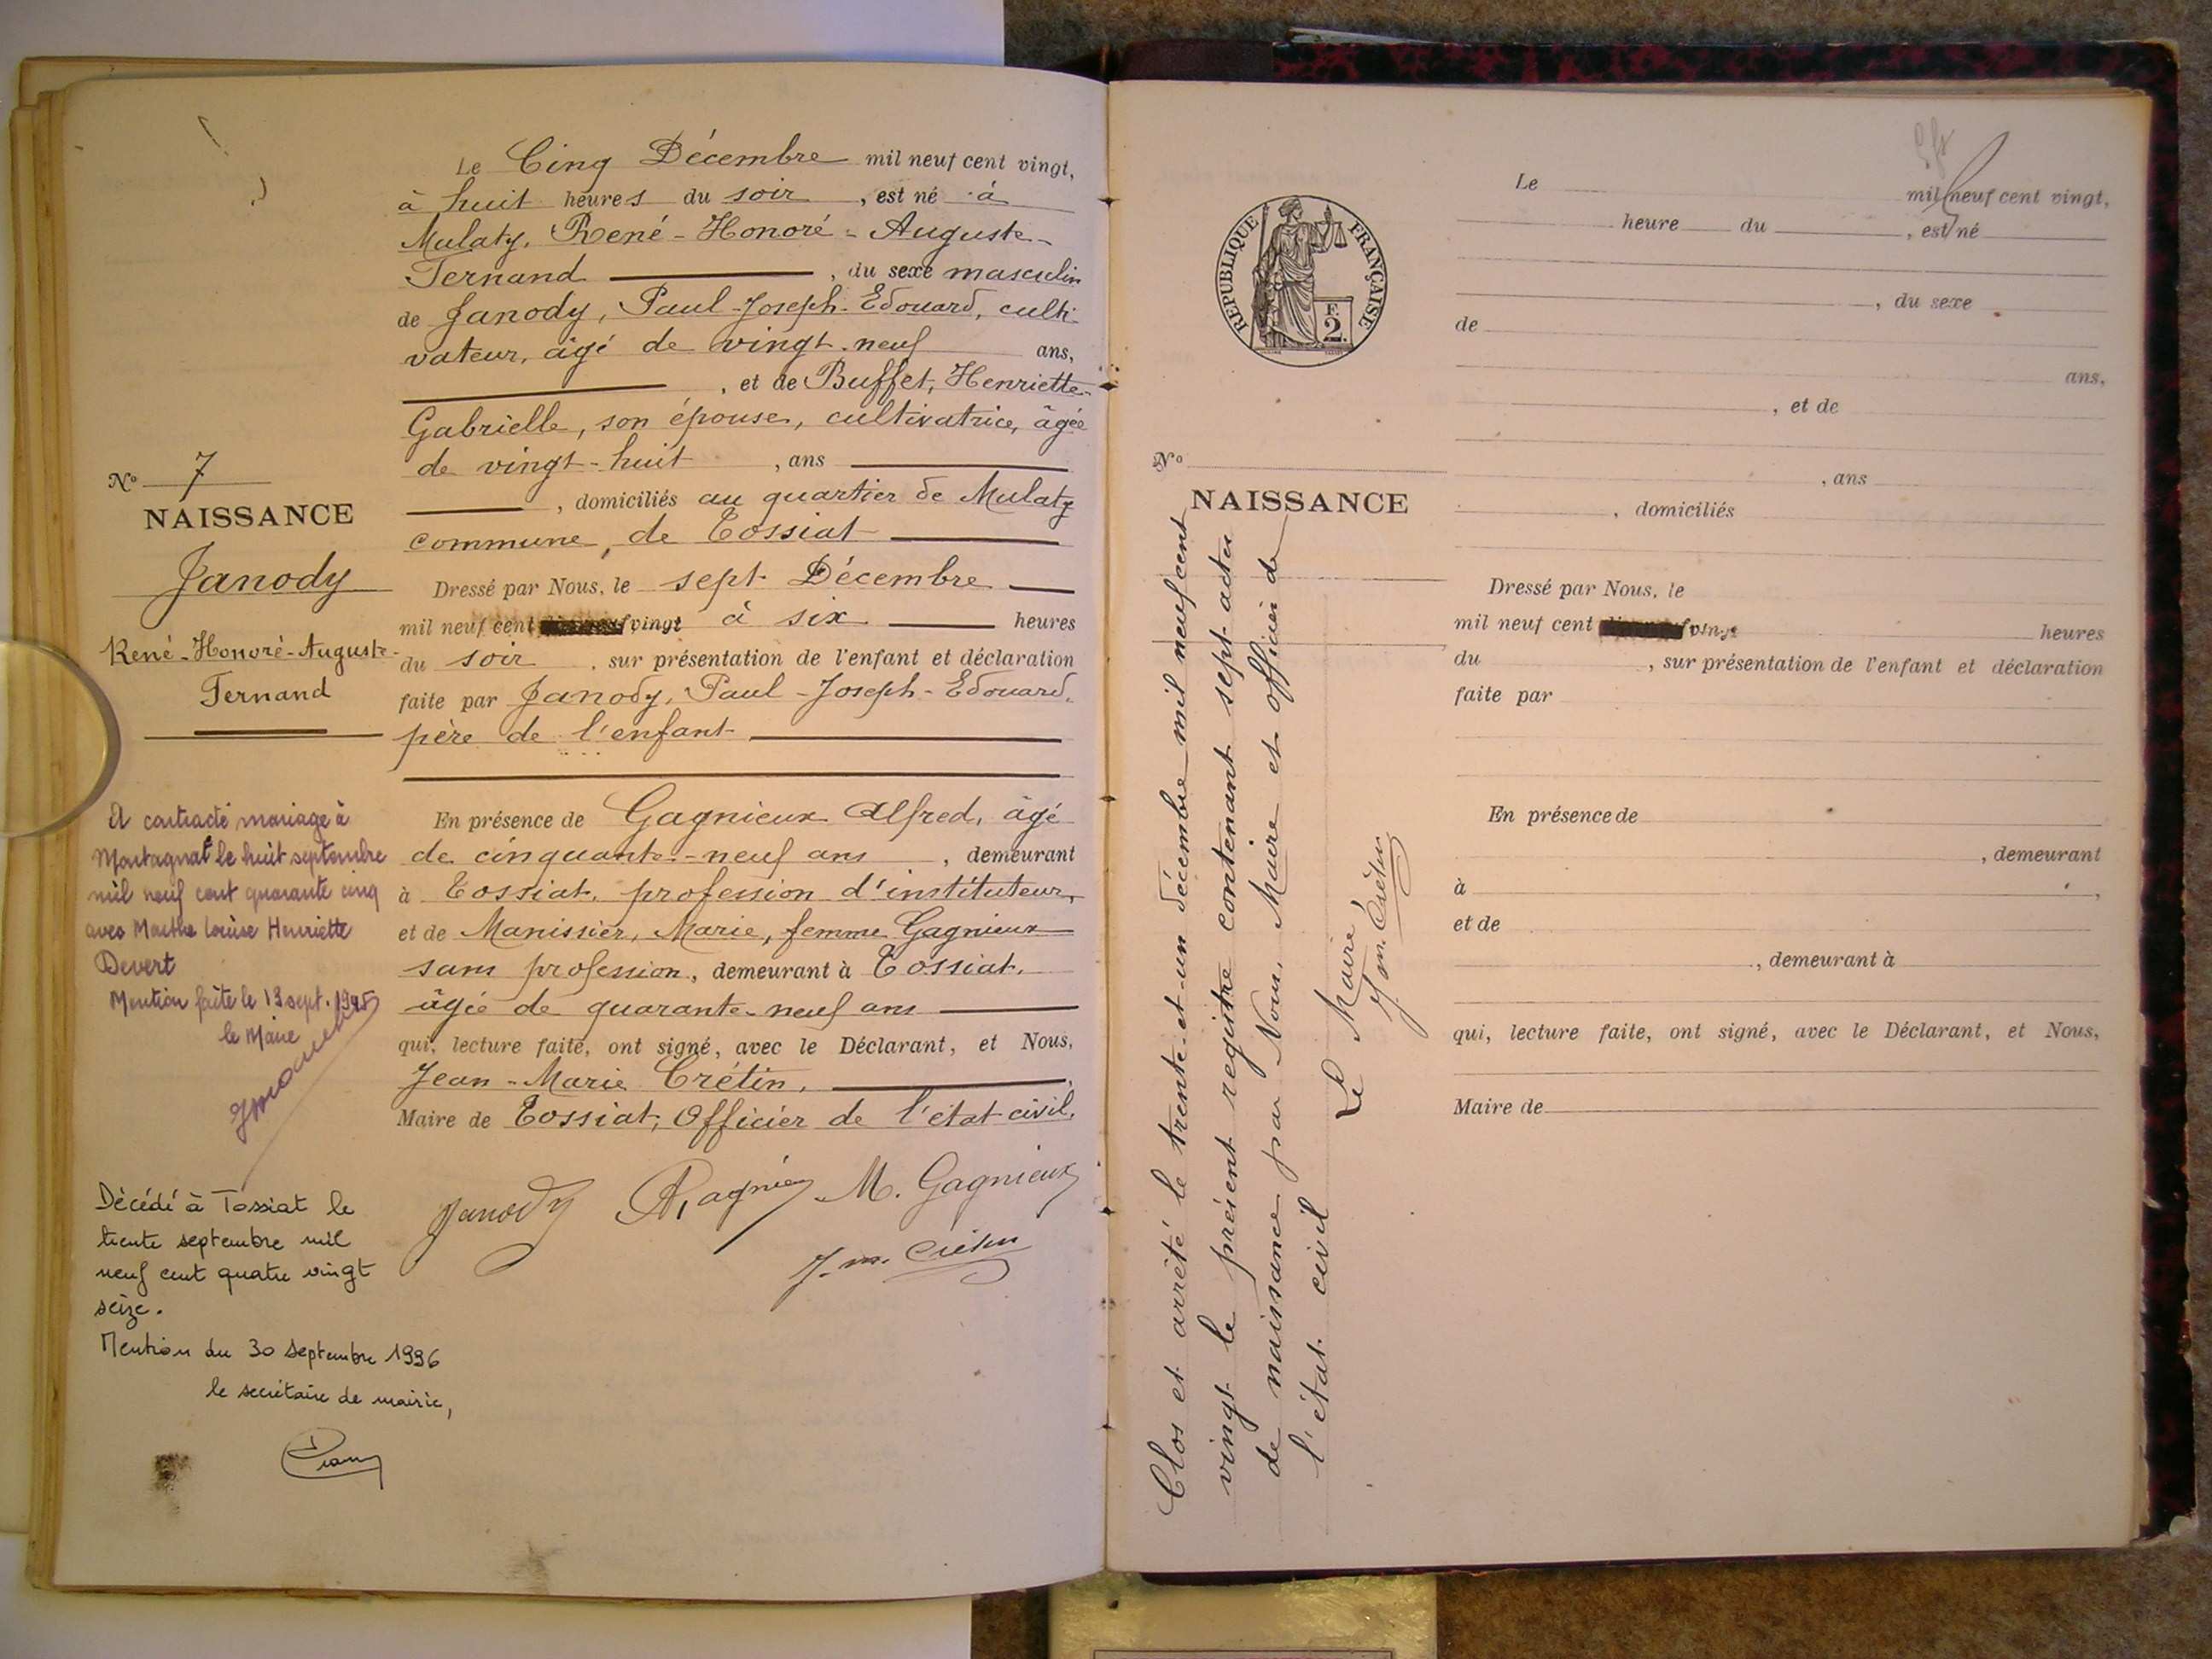 Le Cinq Décembre mil neuf cent vingt,
à huit heures du soir, est né à
Mulatz, René-Honoré-Auguste-
Fernand, du sexe masculin
de Janody, Paul-Joseph-Edouard, culti-
vateur, âgé de vingt-neuf ans,
, et de Buffet, Henriette-
Gabrielle, son épouse, cultivatrice, âgée
de vingt-huit, ans
, domiciliés au quartier de Mulatz
commune, de Tossiat
Dressé par Nous, le sept Décembre
mil neuf cent vingt à six heures
du soir, sur présentation de l'enfant et déclaration
faite par Janody, Paul-Joseph-Edouard.
père de l'enfant
En présence de Gagnieux Alfred, âgé
de cinquante-neuf ans, demeurant
à Tossiat, profession d'instituteur,
et de Manissier, Marie, femme Gagnieux
sans profession, demeurant à Tossiat,
âgée de quarante-neuf ans
qui, lecture faite, ont signé, avec le Déclarant, et Nous,
Jean-Marie Crétin,
Maire de Tossiat, Officier de l'état civil.
Janody M. Gagnieux
J. m. Crétin
No 7
NAISSANCE
Janody
René-Honoré-Auguste-
Fernand
A contracté mariage à
le huit septembre
mil neuf cent quarante cinq
avec Marthe Louise Henriette
Devert
Mention faite le 13 sept. 1945
le Maire
Décédé à Tossiat le
trente septembre mil
neuf cent quatre vingt
seize.
Mention du 30 septembre 1996
le secrétaire de mairie,
REPUBLIQUE FRANÇAISE
F.
2.
No
NAISSANCE
Clos et arrêté le trente-et-un décembre mil neuf cent
vingt le présent registre contenant sept actes
de naissance par Nous, Maire et officier de
l'état civil
Le Maire
J. m. Crétin
Le mil neuf cent vingt,
heure du , est né
, du sexe
de
ans,
, et de
, ans
, domiciliés
Dressé par Nous, le
mil neuf cent vingt heures
du , sur présentation de l'enfant et déclaration
faite par
En présence de
, demeurant
à ,
et de
, demeurant à
qui, lecture faite, ont signé, avec le Déclarant, et Nous,
Maire de